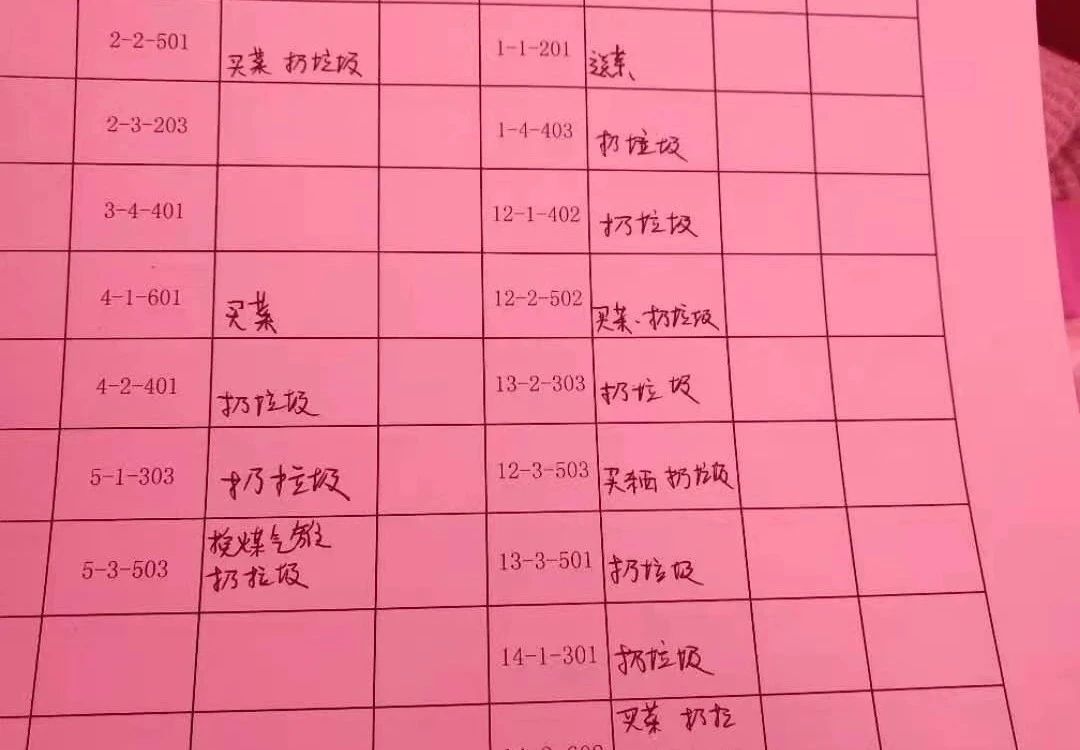 2-2-501 买菜 扔垃圾 1-1-201 送菜
2-3-203 1-4-403 扔垃圾
3-4-401 12-1-402 扔垃圾
4-1-601 买菜 12-2-502 买菜、扔垃圾
4-2-401 扔垃圾 13-2-303 扔垃圾
5-1-303 扔垃圾 12-3-503 买东西 扔垃圾
换煤气罐
5-3-503 扔垃圾 13-3-501 扔垃圾
14-1-301 扔垃圾
买菜 扔垃